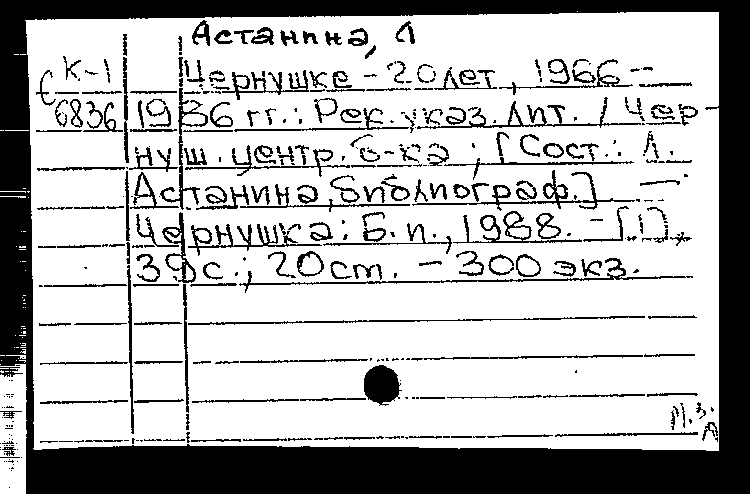 Астанина, Л
К-1 Чернушке – 20 лет, 1966 –
6836 1986 гг.: Рек. указ. лит. / Чер-
нуш. центр. б-ка; [Сост.: Л.
Астанина, библиограф.] –
Чернушка: Б. и., 1988. – [1],
39 с.; 20 см. – 300 экз.